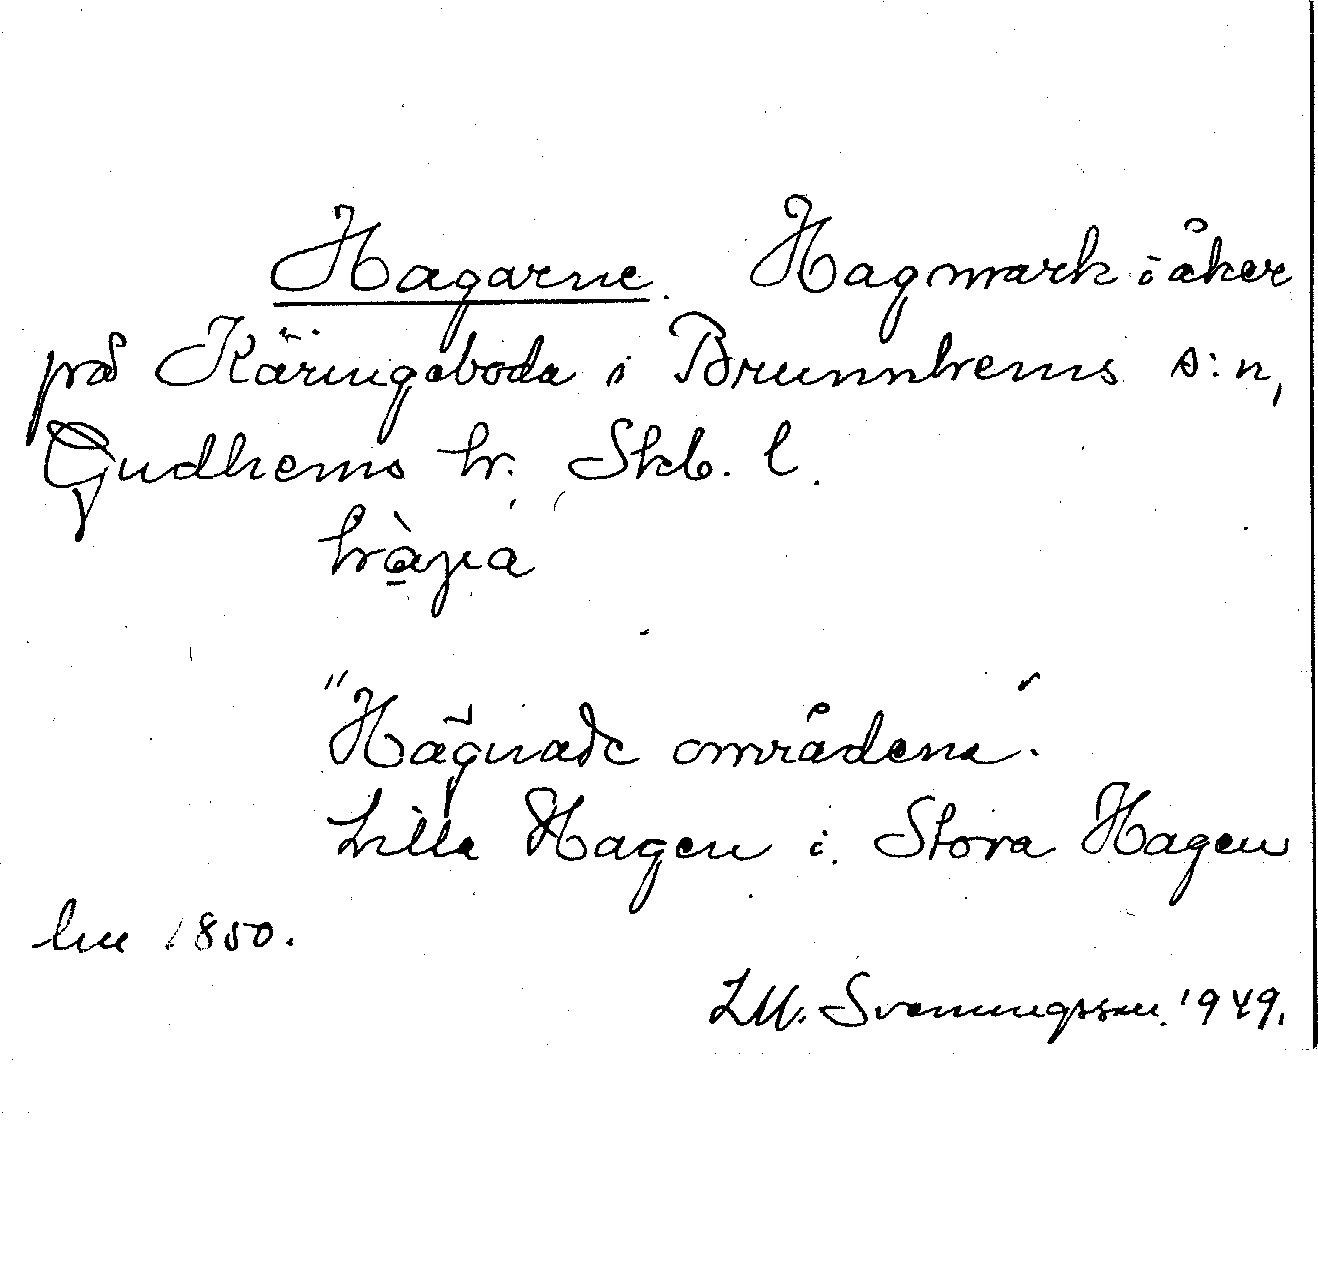 Hagarne. Hagmark i åker
på Käringaboda i Brunnhems s:n,
Gudhems hr. Skb. l.
"Hägnade områdena".
Lilla Hagen i. Stora Hagen
1850.
LM. Svenungsson. 1949.